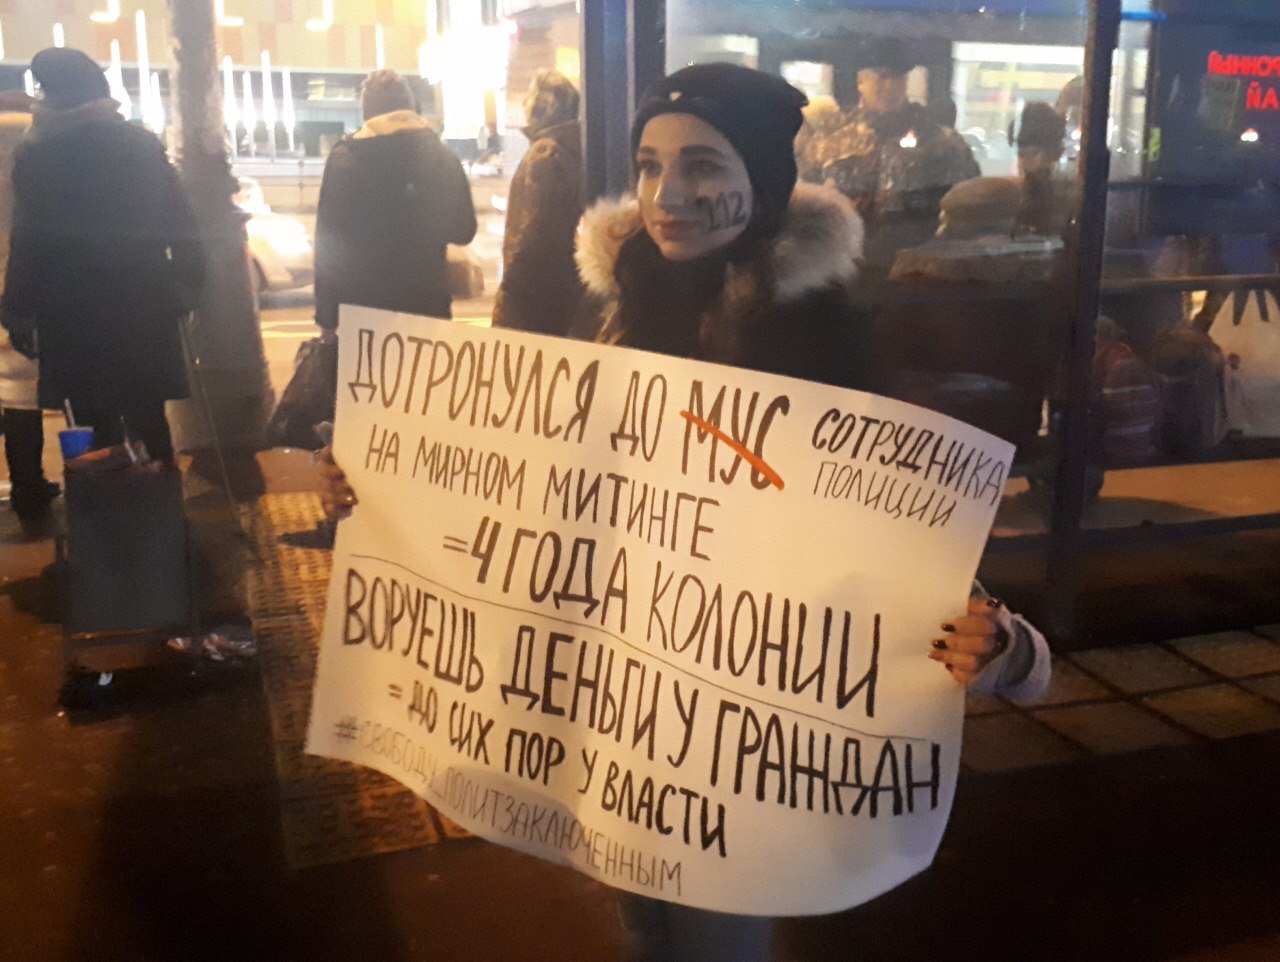 212
ДОТРОНУЛСЯ ДО МУС СОТРУДНИКА
ПОЛИЦИИ
НА МИРНОМ МИТИНГЕ
=4 ГОДА КОЛОНИИ
ВОРУЕШЬ ДЕНЬГИ У ГРАЖДАН
= ДО СИХ ПОР У ВЛАСТИ
#СВОБОДУ_ПОЛИТЗАКЛЮЧЕННЫМ